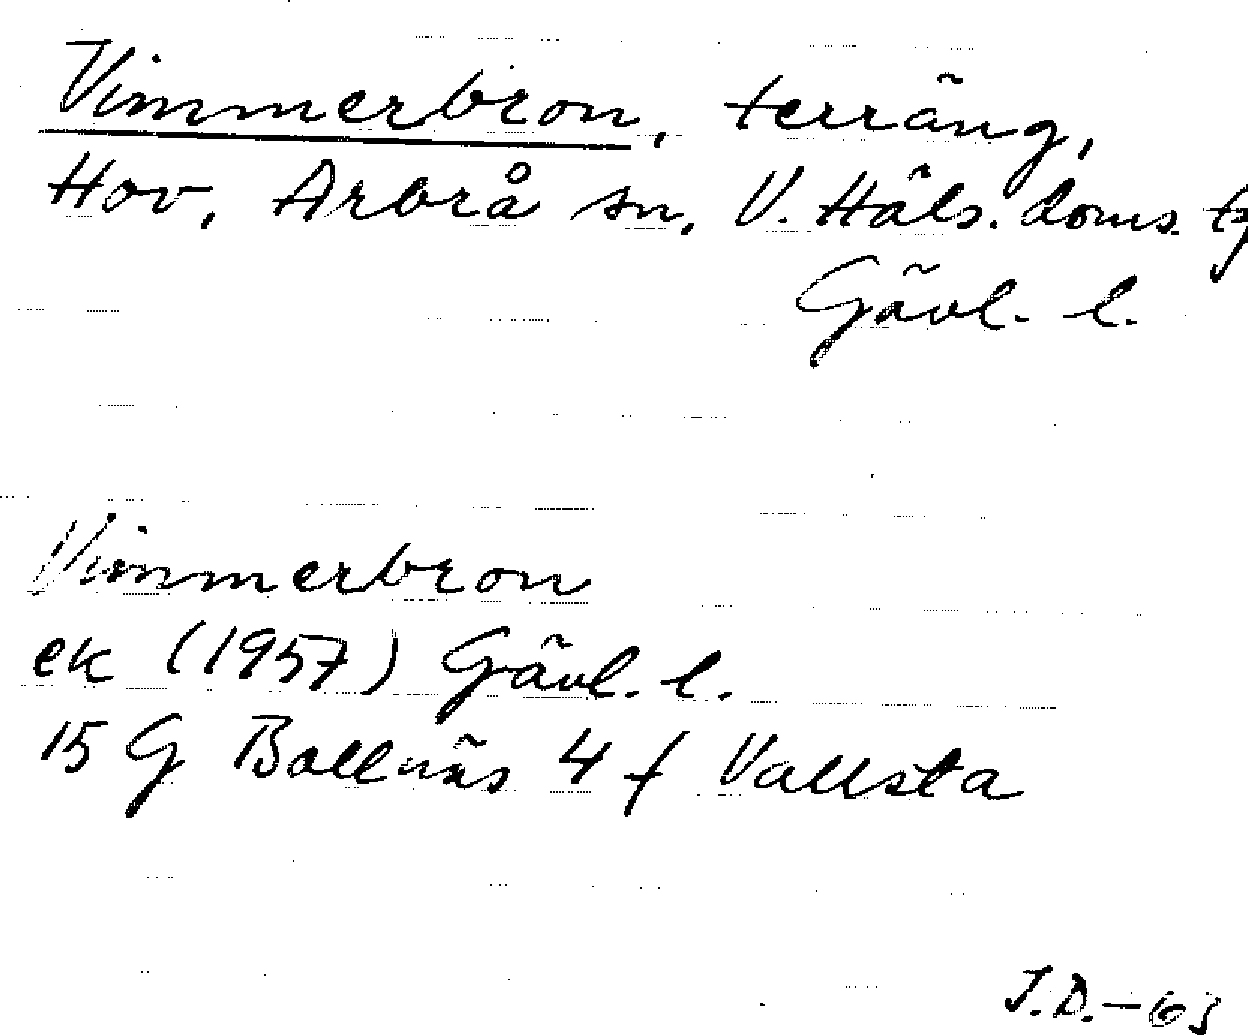 Vimmerbron, terräng,
Hov, Arbrå sn, V. Häls. doms.
Gävl. l.
Vimmerbron
ek (1957) Gävl. l.
15 G Bollnäs 4 f Vallsta
J.D.–63